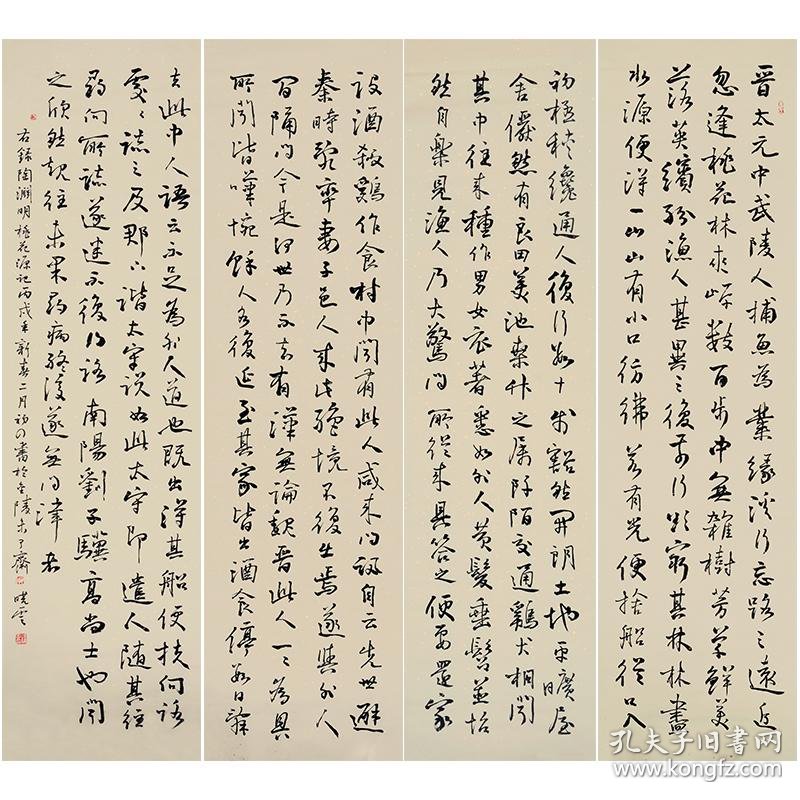 晋太元中武陵人捕魚為業緣溪行忘路之遠近
忽逢桃花林夾岸數百步中無雜樹芳草鮮美
落英繽紛漁人甚異之復前行欲窮其林林盡
水源便得一山山有小口彷彿若有光便捨船從口入
初極狹纔通人復行數十步豁然開朗土地平曠屋
舍儼然有良田美池桑竹之屬阡陌交通鷄犬相聞
其中往來種作男女衣著悉如外人黃髮垂髫並怡
然自樂見漁人乃大驚問所從來具答之便要還家
設酒殺鷄作食村中聞有此人咸來問訊自云先世避
秦時亂率妻子邑人來此絕境不復出焉遂與外人
間隔問今是何世乃不知有漢無論魏晉此人一一為具
所聞皆嘆惋餘人各復延至其家皆出酒食停數日辭
去此中人語云不足為外人道也既出得其船便扶向路
處々誌之及郡下詣太守說如此太守即遣人隨其往
尋向所誌遂迷不復得路南陽劉子驥高尚士也聞
之欣然規往未果尋病終後遂無問津者
右錄陶淵明桃花源記丙戌年新春二月初書於金陵未了齋曉雲
孔夫子旧书网
www.kongfz.com